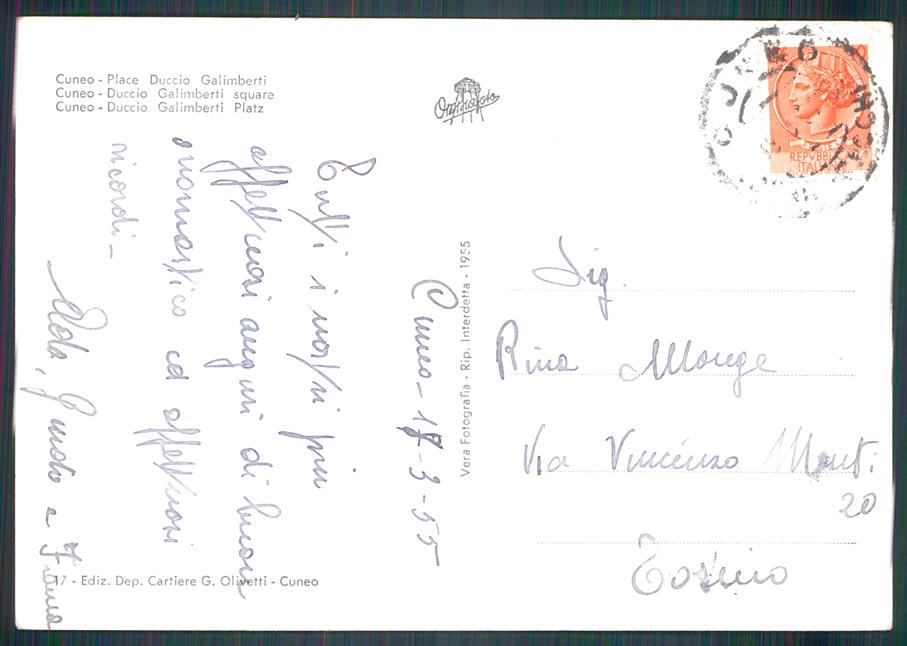 Cuneo - Place Duccio Galimberti
Cuneo - Duccio Galimberti square
Cuneo - Duccio Galimberti Platz
Omniafoto
CUNEO
REPVBBLICA
ITALIANA
Cuneo - 17-3-55
Tutti i nostri più
affettuosi auguri di buon
onomastico ed affettuosi
ricordi -
Aldo, e Franca
Vera Fotografia - Rip. Interdetta - 1955
Sig.
Rina Monge
Via Vincenzo Monti
20
Torino
17 - Ediz. Dep. Cartiere G. Olivetti - Cuneo